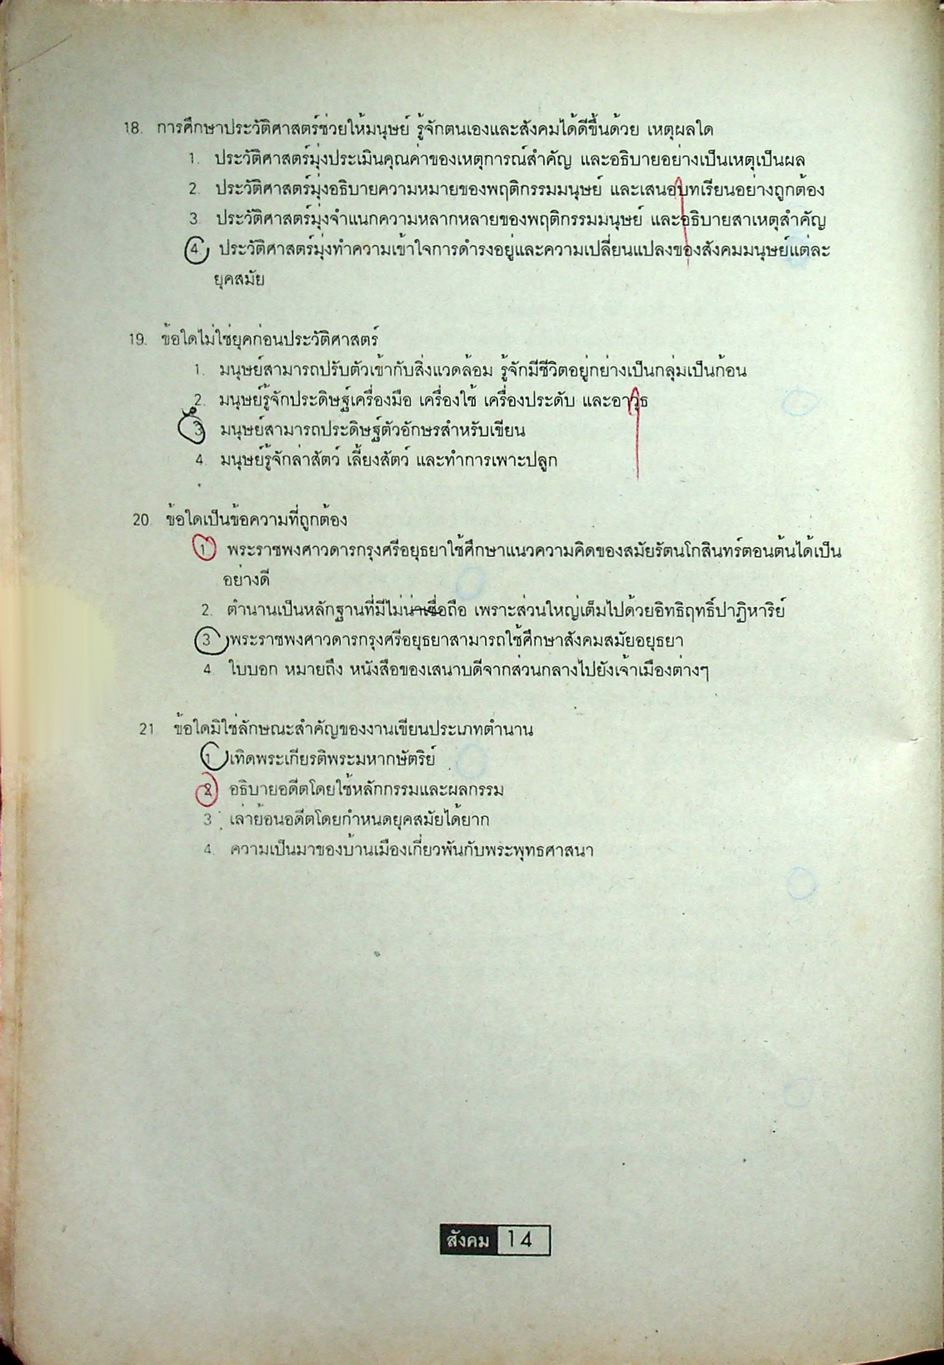 18. การศึกษาประวัติศาสตร์ช่วยให้มนุษย์ รู้จักตนเองและสังคมได้ดีขึ้นด้วย เหตุผลใด
1. ประวัติศาสตร์มุ่งประเมินคุณค่าของเหตุการณ์สำคัญ และอธิบายอย่างเป็นเหตุเป็นผล
2. ประวัติศาสตร์มุ่งอธิบายความหมายของพฤติกรรมมนุษย์ และเสนอบทเรียนอย่างถูกต้อง
3. ประวัติศาสตร์มุ่งจำแนกความหลากหลายของพฤติกรรมมนุษย์ และอธิบายสาเหตุสำคัญ
4. ประวัติศาสตร์มุ่งทำความเข้าใจการดำรงอยู่และความเปลี่ยนแปลงของสังคมมนุษย์แต่ละ
ยุคสมัย
19. ข้อใดไม่ใช่ยุคก่อนประวัติศาสตร์
1. มนุษย์สามารถปรับตัวเข้ากับสิ่งแวดล้อม รู้จักมีชีวิตอยู่กย่างเป็นกลุ่มเป็นก้อน
2. มนุษย์รู้จักประดิษฐ์เครื่องมือ เครื่องใช้ เครื่องประดับ และอาวุธ
3. มนุษย์สามารถประดิษฐ์ตัวอักษรสำหรับเขียน
4. มนุษย์รู้จักล่าสัตว์ เลี้ยงสัตว์ และทำการเพาะปลูก
20. ข้อใดเป็นข้อความที่ถูกต้อง
1. พระราชพงศาวดารกรุงศรีอยุธยาใช้ศึกษาแนวความคิดของสมัยรัตนโกสินทร์ตอนต้นได้เป็น
อย่างดี
2. ตำนานเป็นหลักฐานที่มีไม่น่าเชื่อถือ เพราะส่วนใหญ่เต็มไปด้วยอิทธิฤทธิ์ปาฏิหาริย์
3. พระราชพงศาวดารกรุงศรีอยุธยาสามารถใช้ศึกษาสังคมสมัยอยุธยา
4. ใบบอก หมายถึง หนังสือของเสนาบดีจากส่วนกลางไปยังเจ้าเมืองต่างๆ
21. ข้อใดมิใช่ลักษณะสำคัญของงานเขียนประเภทตำนาน
1. เทิดพระเกียรติพระมหากษัตริย์
2. อธิบายอดีตโดยใช้หลักกรรมและผลกรรม
3. เล่าย้อนอดีตโดยกำหนดยุคสมัยได้ยาก
4. ความเป็นมาของบ้านเมืองเกี่ยวพันกับพระพุทธศาสนา
สังคม 14